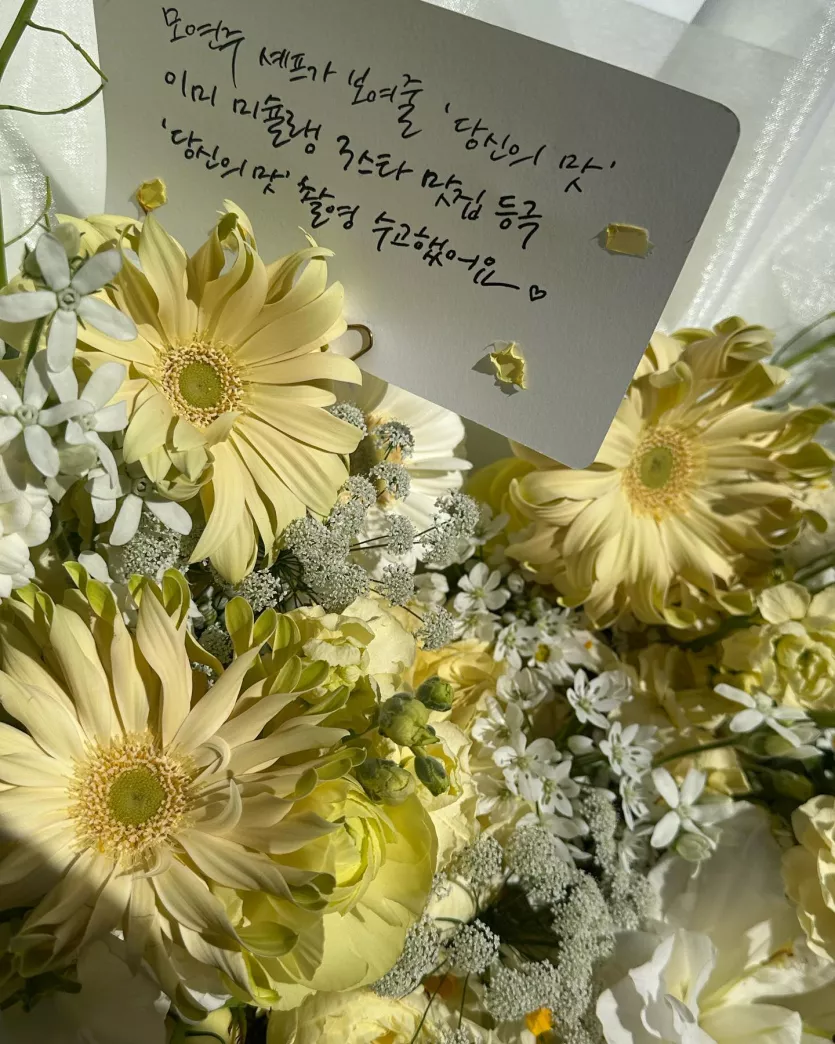 모연주 셰프가 보여줄 '당신의 맛'
이미 미슐랭 쓰리스타 맛집 등극
'당신의 맛' 촬영 수고했어요 ♡